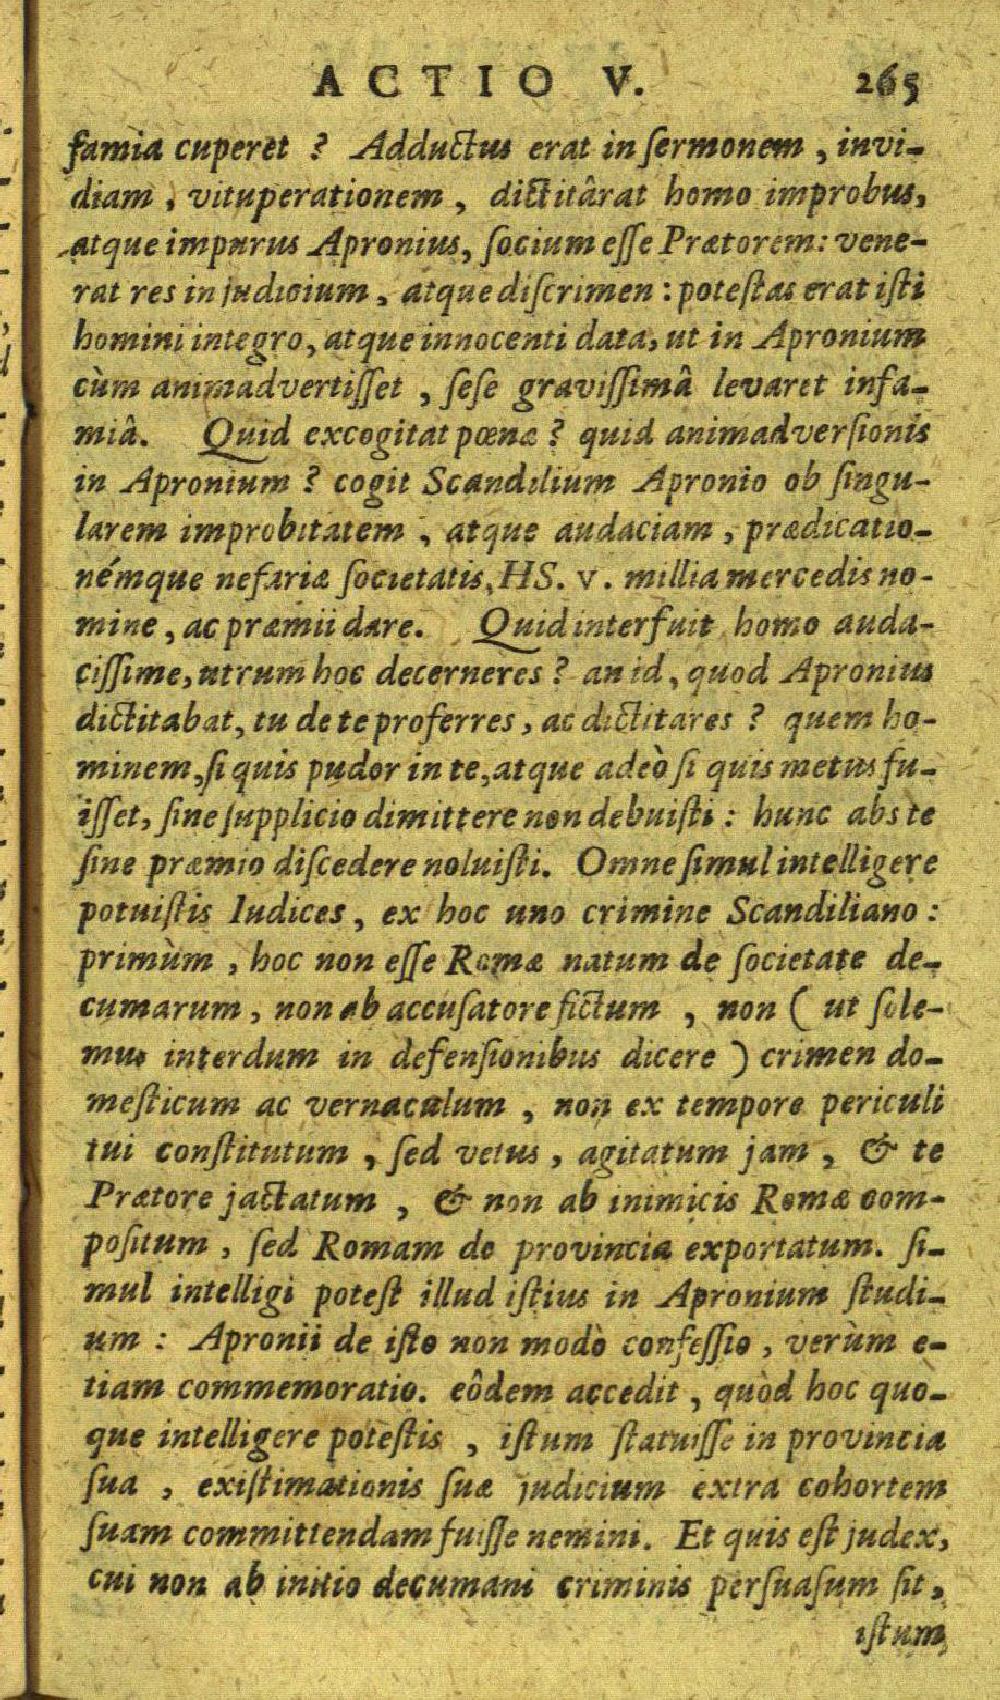 ACTIO V. 265
famia cuperet ? Adductus erat in ſermonem , invi-
diam , vituperationem , dictitârat homo improbus,
atque impurus Apronius, ſocium eſſe Prætorem: vene-
rat res in judicium , atque diſcrimen : poteſtas erat iſti
homini integro, atque innocenti data, ut in Apronium
cùm animadvertiſſet , ſeſe graviſſimâ levaret infa-
miâ. Quid excogitat pœnæ ? quid animadverſionis
in Apronium ? cogit Scandilium Apronio ob ſingu-
larem improbitatem , atque audaciam , prædicatio-
némque nefariæ ſocietatis, HS. v. millia mercedis no-
mine , ac præmii dare. Quid interfuit homo auda-
ciſſime, utrum hoc decerneres ? an id, quod Apronius
dictitabat, tu de te proferres, ac dictitares ? quem ho-
minem, ſi quis pudor in te, atque adeò ſi quis metus fu-
iſſet, ſine ſupplicio dimittere non debuiſti : hunc abs te
ſine præmio diſcedere noluiſti. Omne ſimul intelligere
potuiſtis Iudices, ex hoc uno crimine Scandiliano :
primùm , hoc non eſſe Romæ natum de ſocietate de-
cumarum, non ab accuſatore fictum , non ( ut ſole-
mus interdum in defenſionibus dicere ) crimen do-
meſticum ac vernaculum , non ex tempore periculi
tui conſtitutum , ſed vetus , agitatum jam , & te
Prætore jactatum , & non ab inimicis Romæ com-
poſitum , ſed Romam de provincia exportatum. ſi-
mul intelligi poteſt illud iſtius in Apronium ſtudi-
um : Apronii de iſto non modò confeſſio , verùm e-
tiam commemoratio. eôdem accedit , quòd hoc quo-
que intelligere poteſtis , iſtum ſtatuiſſe in provincia
ſua , exiſtimationis ſuæ judicium extra cohortem
ſuam committendam fuiſſe nemini. Et quis eſt judex,
cui non ab initio decumani criminis perſuaſum ſit ,
iſtum